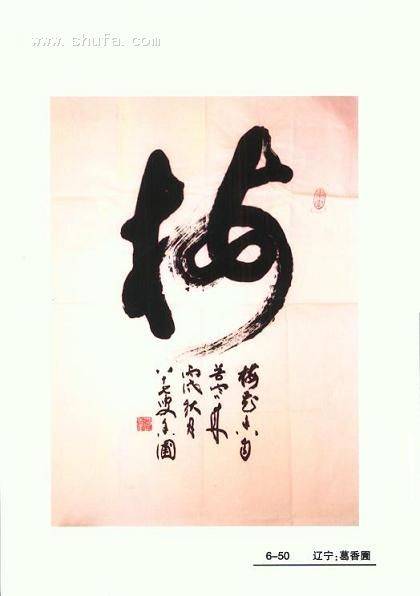 www.shufa.com
梅
梅花香自
苦寒来
丙戌秋月
八十七叟香圃
6-50 辽宁:葛香圃